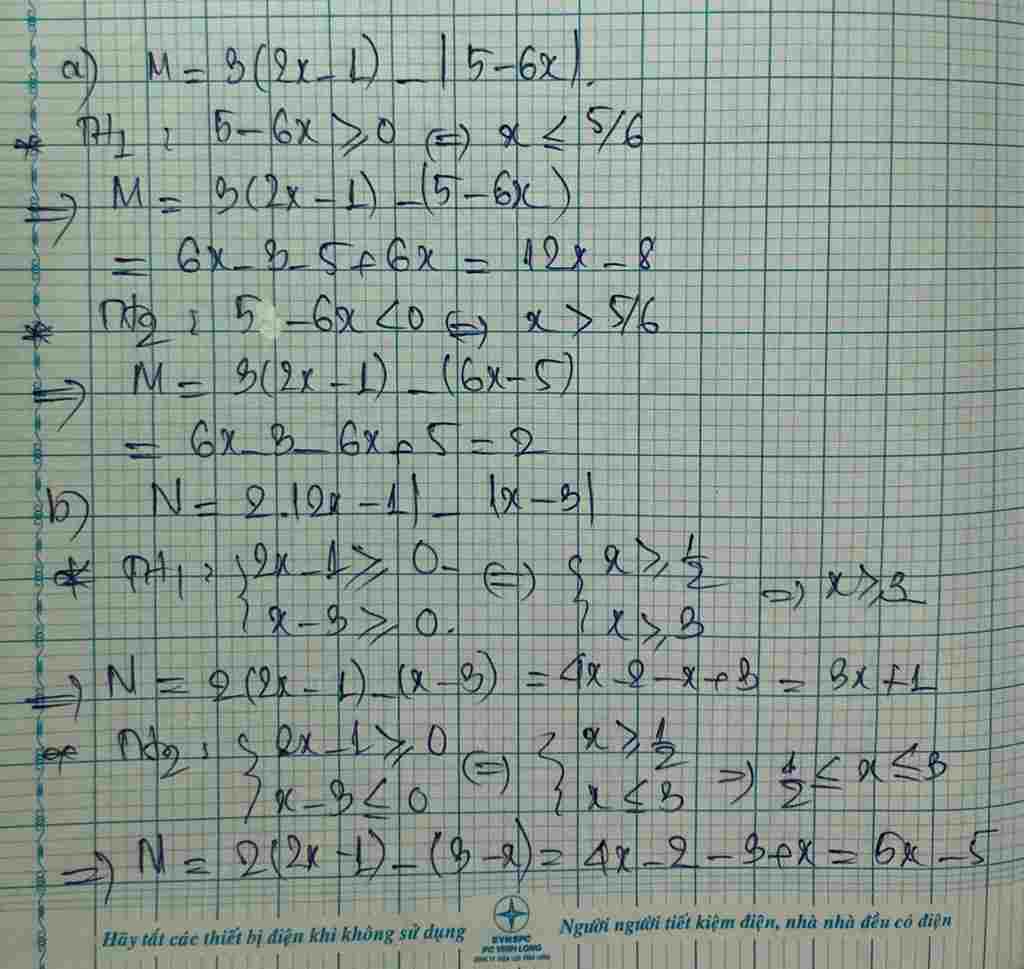 a) M = 3(2x-1) - |5-6x|.
* TH1 : 5-6x ≥ 0 ⇔ x ≤ 5/6
⇒ M = 3(2x-1) - (5-6x)
= 6x-3-5+6x = 12x-8
* TH2 : 5-6x < 0 ⇔ x > 5/6
⇒ M = 3(2x-1) - (6x-5)
= 6x-3-6x+5 = 2
b) N = 2.|2x-1| - |x-3|
* TH1 : { 2x-1 ≥ 0 ⇔ { x ≥ 1/2 ⇒ x ≥ 3
x-3 ≥ 0. x ≥ 3
⇒ N = 2(2x-1)-(x-3) = 4x-2-x+3 = 3x+1
* TH2 : { 2x-1 ≥ 0 ⇔ { x ≥ 1/2 ⇒ 1/2 ≤ x ≤ 3
x-3 ≤ 0 x ≤ 3
⇒ N = 2(2x-1)-(3-x) = 4x-2-3+x = 5x-5
Hãy tắt các thiết bị điện khi không sử dụng
EVNSPC
PC VINH LONG
Người người tiết kiệm điện, nhà nhà đều có điện